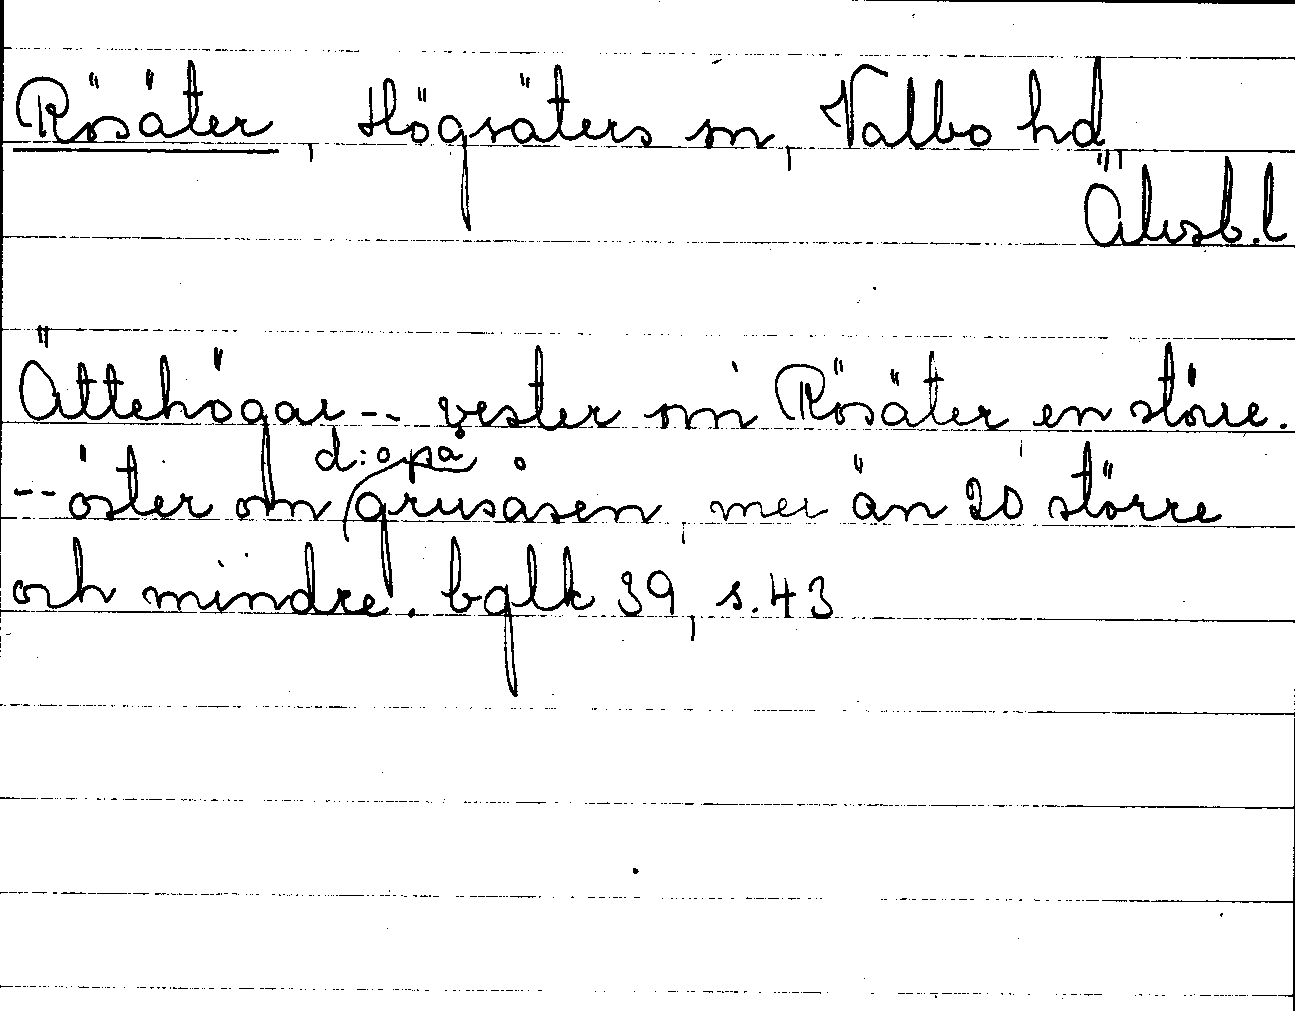 Rösäter, Högsäters sn, Valbo hd,
Älvsb.l
Ättehögar -- vester om Rösäter en större.
d:o på
-- öster om grusåsen, mer än 20 större
och mindre. bglk 39, s. 43